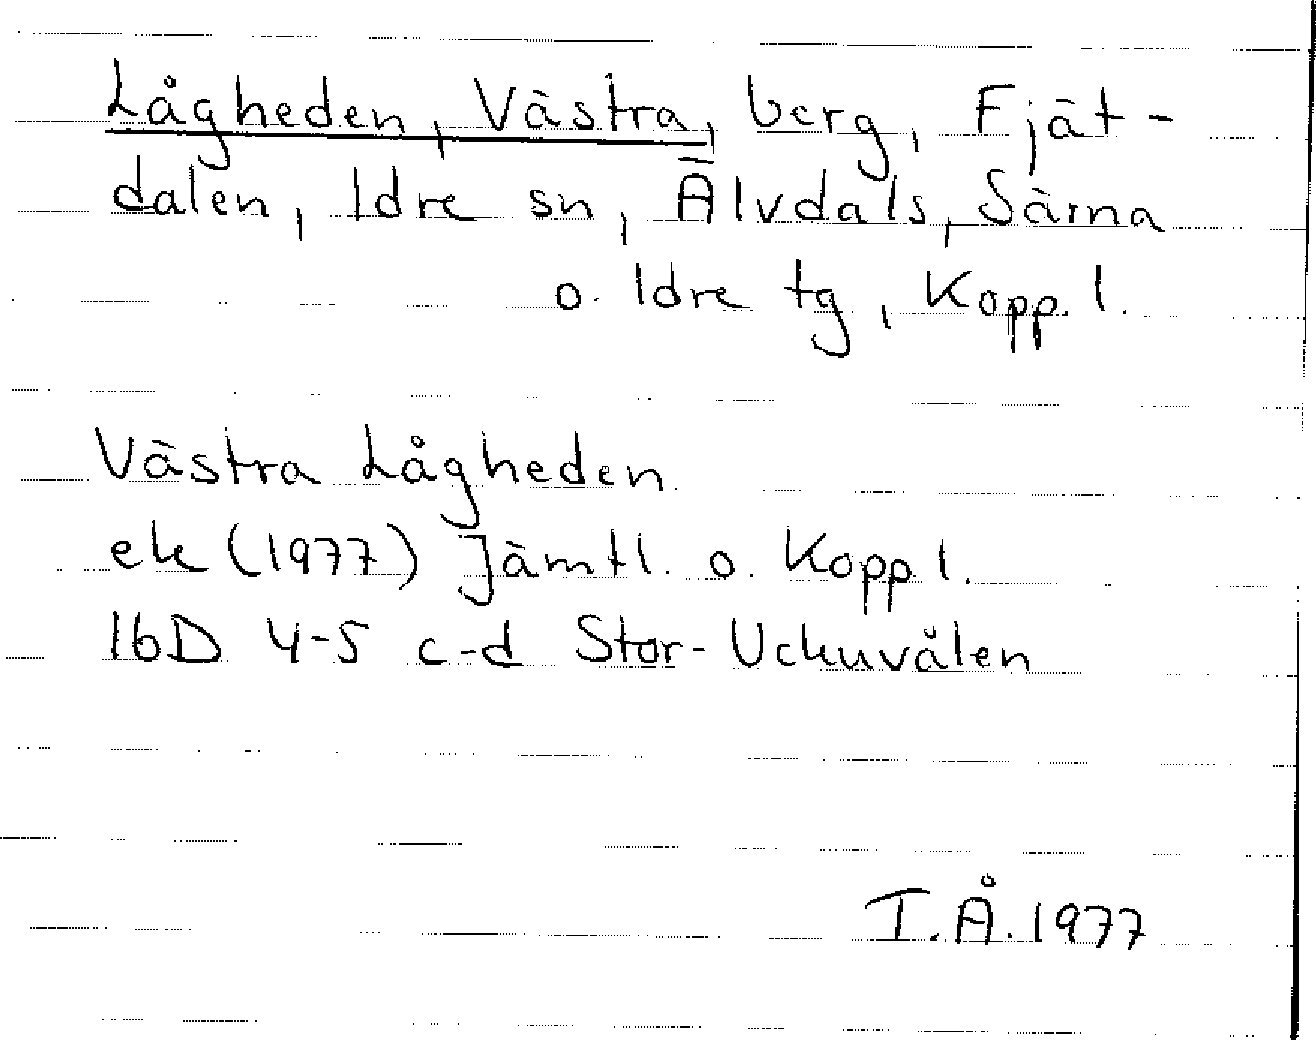 Lågheden, Västra, berg, Fjät-
dalen, Idre sn, Älvdals, Särna
o. Idre tg, Kopp. l.
Västra Lågheden
ek (1977) Jämtl. o. Kopp l.
16D 4-5 c-d Stor-Uckuvålen
T.Å. 1977